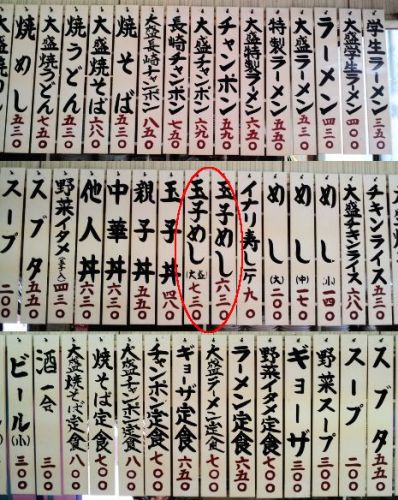 学生ラーメン 三五〇
大盛学生ラーメン 四〇〇
ラーメン 四三〇
大盛ラーメン 五三〇
特製ラーメン 五五〇
大盛特製ラーメン 六五〇
チャンポン 五九〇
大盛チャンポン 六九〇
長崎チャンポン 七五〇
大盛長崎チャンポン 八五〇
焼そば 五三〇
大盛焼そば 六八〇
焼うどん 五三〇
大盛焼うどん 七五〇
焼めし 五三〇
大盛
チキンライス 五三〇
大盛チキンライス 六八〇
めし(小) 一四〇
めし(中) 一七〇
めし(大) 二〇〇
イナリ寿し一ケ 九〇
玉子めし 六三〇
玉子めし(大盛) 七三〇
玉子丼 四八〇
親子丼 五五〇
中華丼 六三〇
他人丼 六三〇
野菜イタメ 四三〇
スブタ 五五〇
スープ 二〇〇
スブタ 五五〇
スープ 二〇〇
野菜スープ 三〇〇
ギョーザ 三〇〇
野菜イタメ定食 七〇〇
ラーメン定食 六五〇
大盛ラーメン定食 七〇〇
ギョーザ定食 六五〇
チャンポン定食 七〇〇
大盛チャンポン定食 八〇〇
焼そば定食 七〇〇
大盛焼そば定食 八〇〇
酒一合 三〇〇
ビール(小) 三〇〇